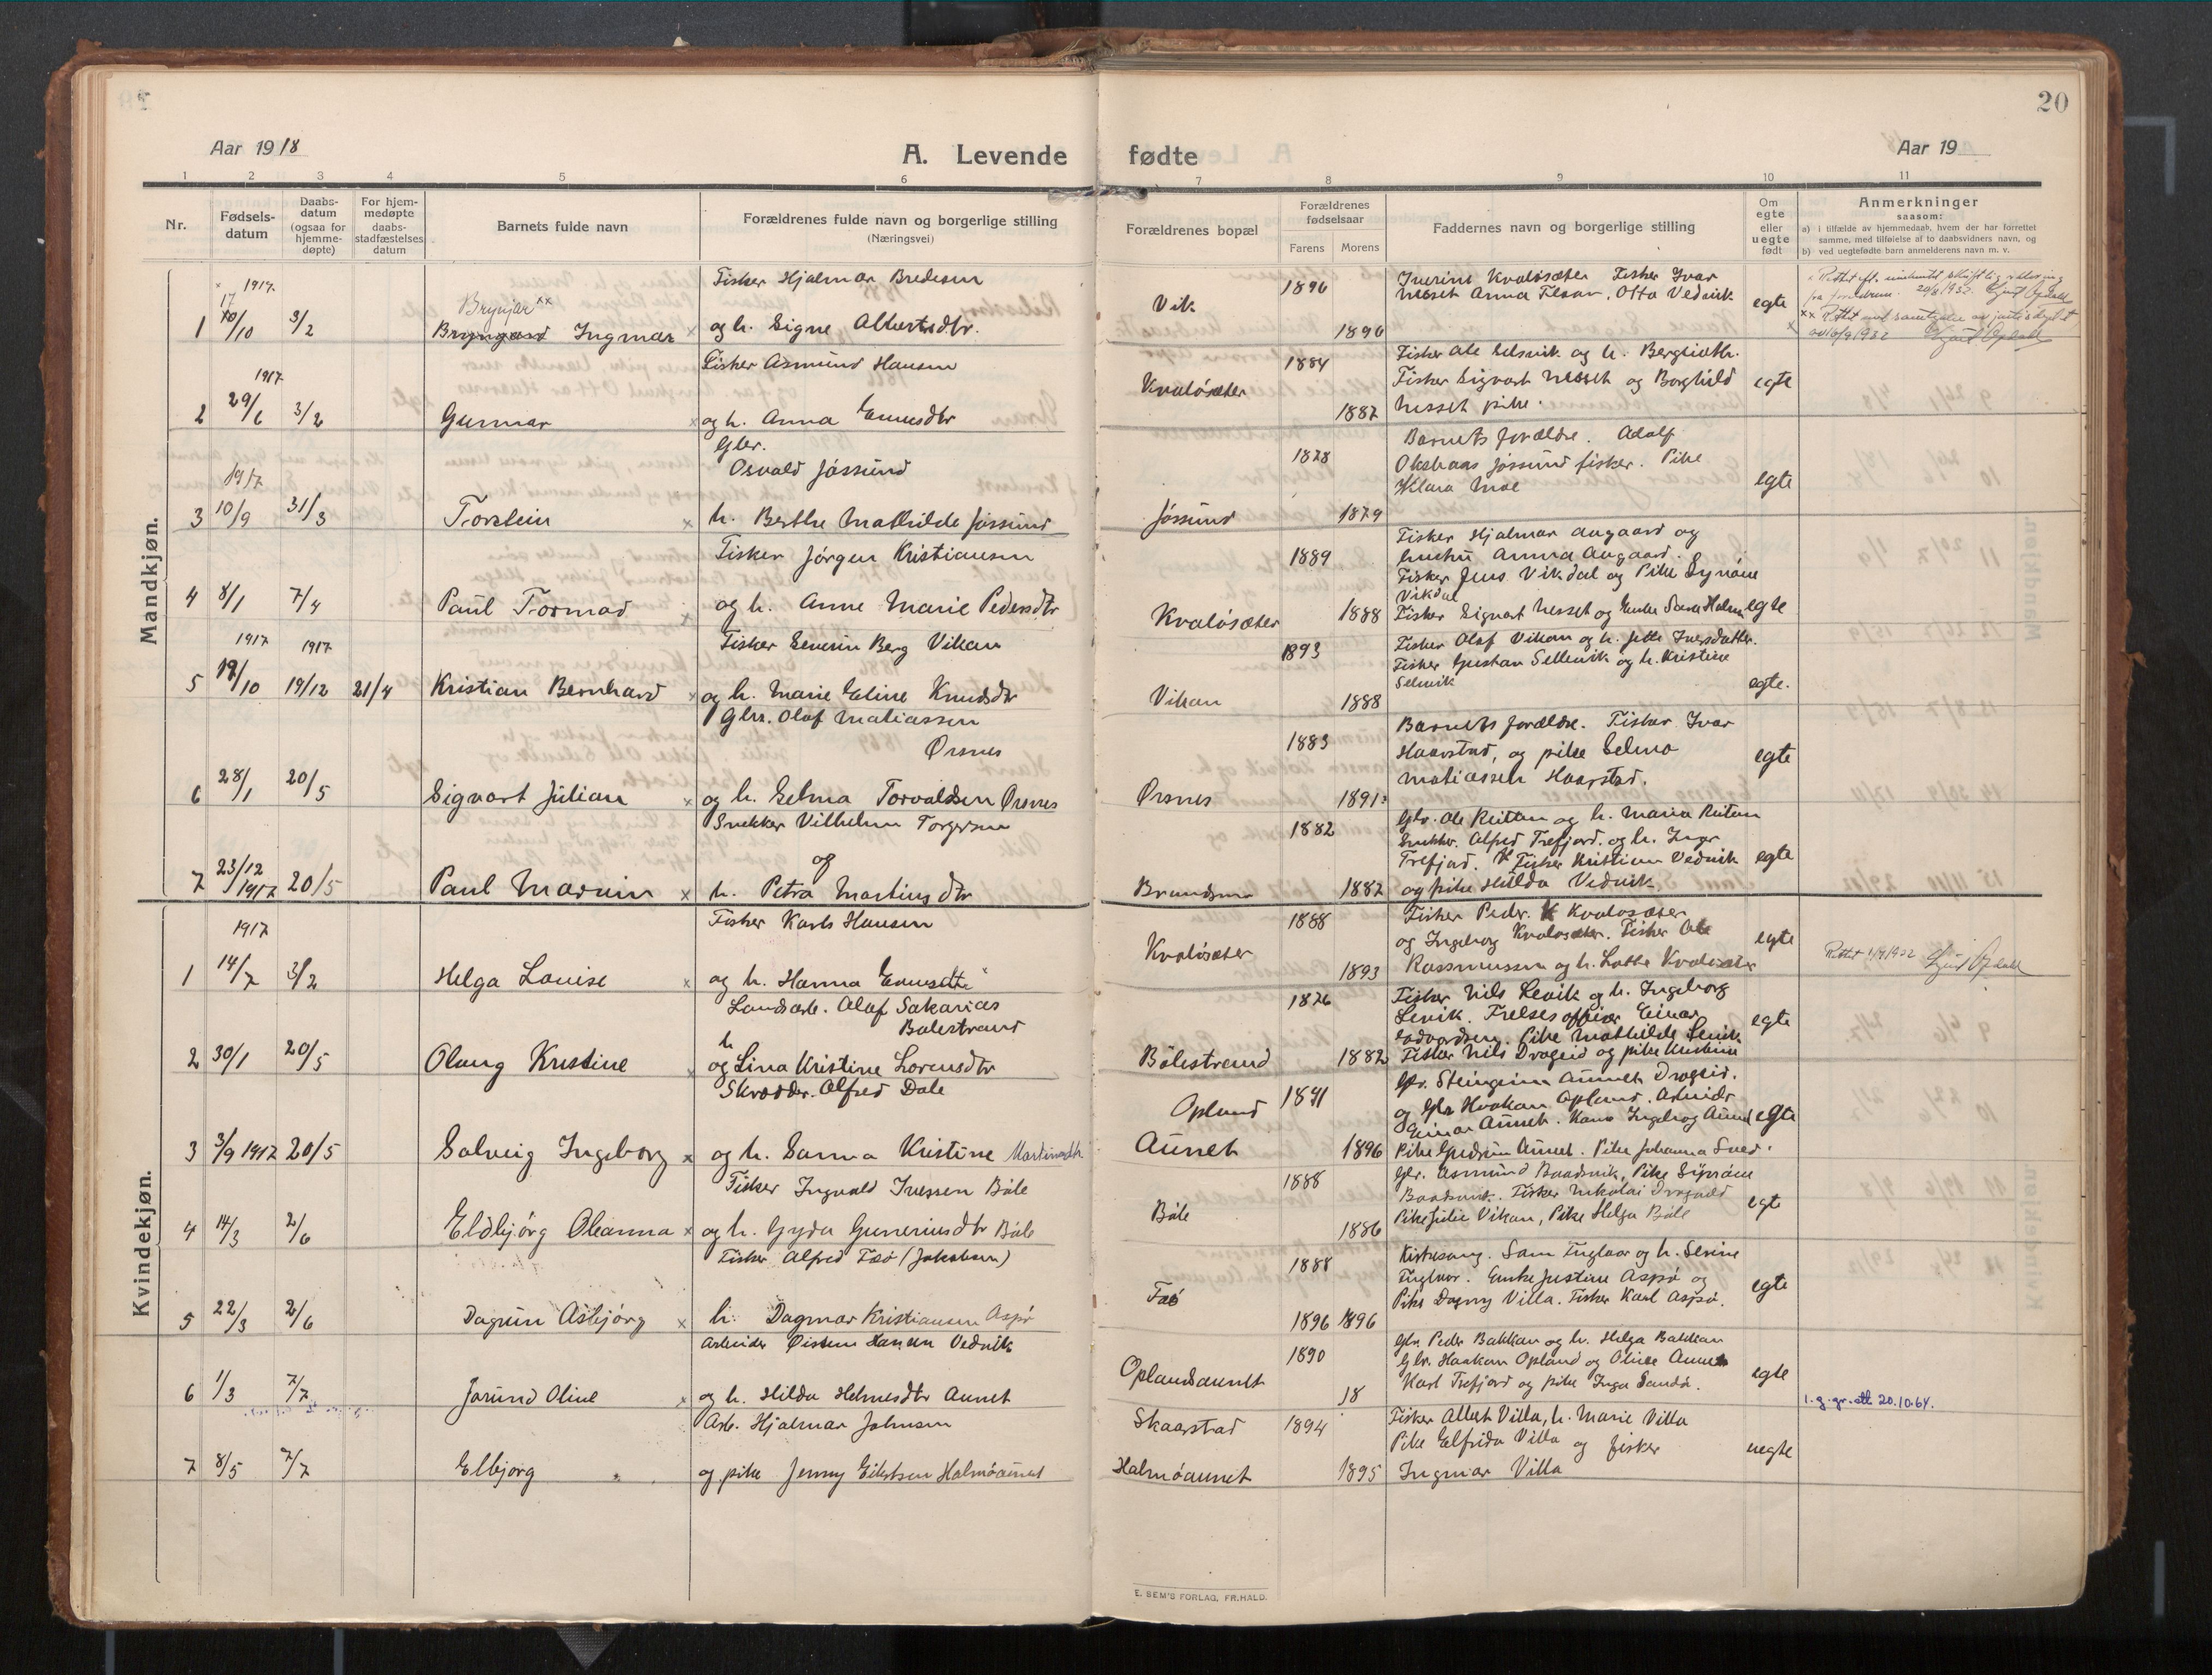 20
Aar 1918
A. Levende fødte
Aar 19
1 2 3 4 5 6 7 8 9 10 11
Nr.
Fødsels-
datum
Daabs-
datum
(ogsaa for
hjemme-
døpte)
For hjem-
medøpte
daabs-
stadfæstelses
datum
Barnets fulde navn
Forældrenes fulde navn og borgerlige stilling
(Næringsvei)
Forældrenes bopæl
Forældrenes
fødselsaar
Farens Morens
Faddernes navn og borgerlige stilling
Om
egte
eller
uegte
født
Anmerkninger
saasom:
a) i tilfælde av hjemmedaab, hvem der har forrettet
samme, med tilføielse af to daabsvidners navn, og
b) ved uegtefødte barn anmelderens navn m. v.
Mandkjøn.
1917. Fisker Hjalmar Bredesen
Brynjar xx
1 17/10 3/2 Ingmar x og h. Signe Albertsdtr.
Vik 1896 1890
Iverine Kvalösæter Fisker Ivar
Nesset Anna Otto Vedvik
egte
20/8 1932.
xx Rettet
1917 Fisker Asmund Hansen
2 29/6 3/2 Gunnar x og h. Anna Enersdtr
Kvalösæter 1884 1887
Fisker Ole Selsvik og h.
Fisker Sigvart Nesset og Borghild
Nesset pike.
egte
Gbr.
1917 Osvald Jössund
3 10/9 31/3 Torstein x h. Berthe Mathilde Jössund
Jössund 1878 1879
Barnets forældre. Adolf
Jössund fisker. Pike
Klara Moe
egte
Fisker Jörgen Kristiansen
4 8/1 7/4 Paul Tormod x og h. Anne Marie Pedersdtr
Kvalösæter 1889 1888
Fisker Hjalmar Aagaard og
Anna Aagaard.
Fisker Jens Vikdal og Pike Synöve
Vikdal
Fisker Sigvart Nesset og Enke Sara Holm
egte
1917 1917 Fisker Severin Berg Vikan
5 19/10 19/12 21/4 Kristian Bernhard x og h. Marie Eline Knudsdtr
Vikan 1893 1888
Fisker Olaf Vikan og h. Jette Iversdatter.
Fisker Gustav Selsvik og h. Kristine
Selnvik
egte.
Gbr. Olaf Matiassen
Örsnes
6 28/1 20/5 Sigvart Julian x og h. Selma Torvaldsen Örsnes
Örsnes 1883 1891
Barnets forældre. Fisker Ivar
Haarstad, og pike Selma
Matiassen Haarstad.
egte
Snekker Vilhelm Torgersen
og
7 23/12 1917 20/5 Paul Marvin x h. Petra Martinsdtr
1882 1882
Gbr. Ole Reitan og h. Maria Reitan
Snekker. Alfred Trefjord. og h. Inga
Trefjord. Fisker Kristian Vedvik
og pike Hilda Vedvik.
egte
Kvindekjøn.
1917 Fisker Karls Hansen
1 14/7 3/2 Helga Louise x og h. Hanna
Kvalösæter 1888 1893
Fisker Peder. K Kvalosæter
og Ingeborg Kvalosæter. Fisker Ole
Rassmussen og h. Lotte Kvalosæter
egte
Rettet 1/9 1932
Landarb. Olaf Sakarias
Bolestrand
h
2 30/1 20/5 Olaug Kristine x og Lina Kristine Lorensdtr
Bölestrand 1876 1882
Fisker Nils Levik og h. Ingeborg
Levik. Frelsesofficer Einar
Edvardsen. Pike Mathilde Levik
Fisker Nils Drageid og pike Kristine
egte
Skrædder. Alfred Dale
3 3/9 1917 20/5 Solveig Ingeborg x og h. Sanna Kristine Martinsdtr
Opland
Aunet 1891 1896
Gbr. Aunet Drageid.
og Gbr Haakon Opland. Arbeider
Einar Aunet. Kone Ingeborg Aunet
Pike Gudrun Aunet. Pike Johanna
egte
Fisker Ingvald Iversen Böle
4 14/3 2/6 Eldbjörg Oleanna x og h. Gyda Gunneriusdtr Böle
Böle 1888 1886
Gbr. Asmund Baadsvik, Pike Synöve
Baadsvik. Fisker Nikolai Drageid
Pike Julie Vikan, Pike Helga Böle
egt
Fisker Alfred Faö (Jakobsen)
5 22/3 2/6 Dagrun Asbjörg x h. Dagmar Kristiansen Aspö
Faö 1888 1896 1896
Kirkesang. Sam Fuglaar og h. Sevine
Fuglaar. Enke Justine Aspö og
Pike Dagny Villa. Fisker Karl Aspö.
egte
Arbeider Öistein Hansen Vedvik
6 1/3 7/7 Jorund Oline x og h. Hilda Helmersdtr Aunet
Oplandsaunet 1890 18
Gbr. Peder Bakkan og h. Helga Bakkan
Gbr. Haakon Opland og Oline Aunet
Karl Trefjord og pike Inga Sandö.
egte
1. g. gr. att 20.10.64.
Arb. Hjalmar Johnsen
7 8/5 7/7 Elbjorg " og pike Jenny Eilertsen Halmöaunet
Skaarstad 1894
Halmöaunet 1895
Fisker Albert Villa, h. Marie Villa
Pike Elfrida Villa og fisker
Ingmar Villa
uegte
E. SEM'S FORLAG, FR.HALD.